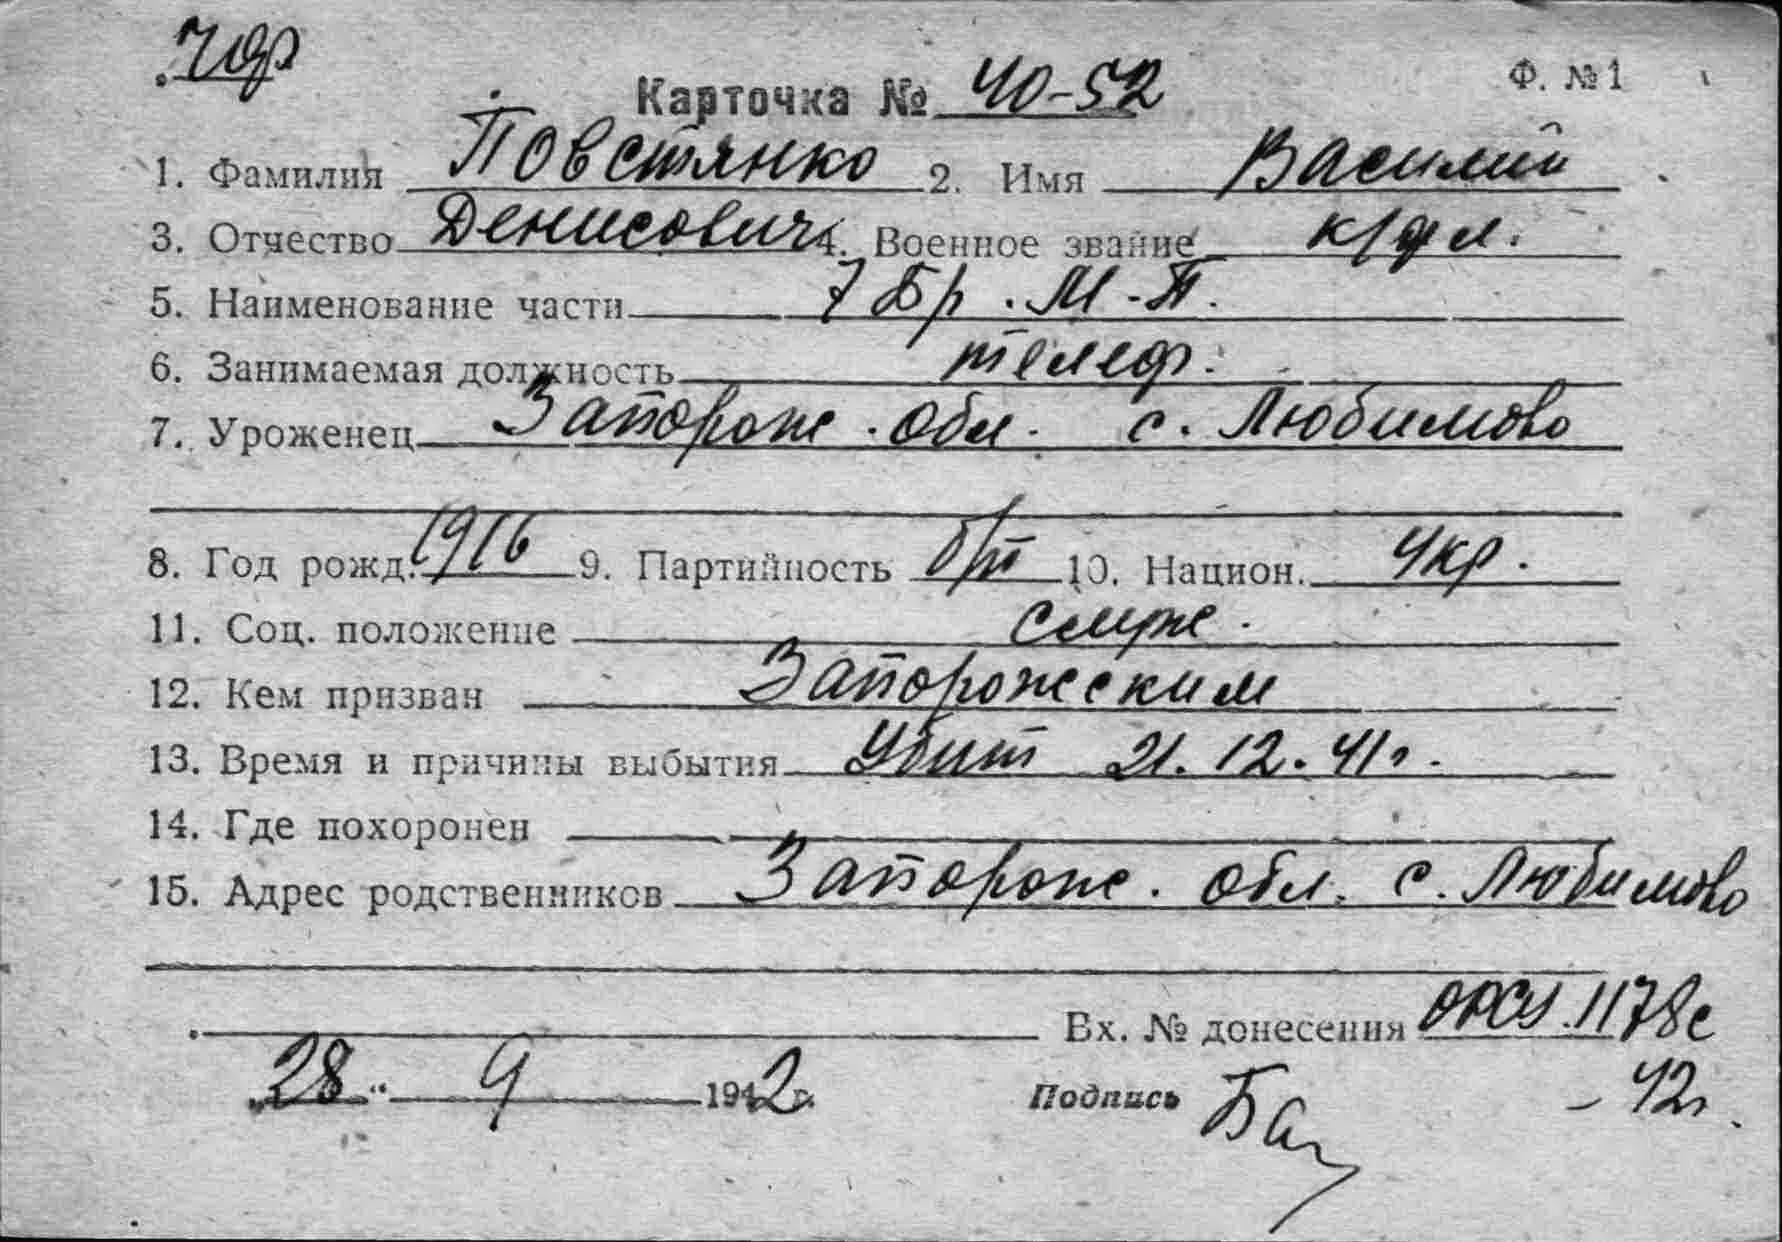 ЧФ
Карточка № 40-52 Ф. №1
1. Фамилия Повстянко 2. Имя Василий
3. Отчество Денисович 4. Военное звание к/фл.
5. Наименование части 7 Бр. М.П.
6. Занимаемая должность телеф.
7. Уроженец Запорож. обл. с. Любимово
8. Год рожд. 1916 9. Партийность б/п 10. Национ. Укр.
11. Соц. положение служ.
12. Кем призван Запорожским
13. Время и причины выбытия Убит 21.12.41г.
14. Где похоронен
15. Адрес родственников Запорож. обл. с. Любимово
Вх. № донесения 1178с
„28“ 9 1942г. Подпись - 42г.